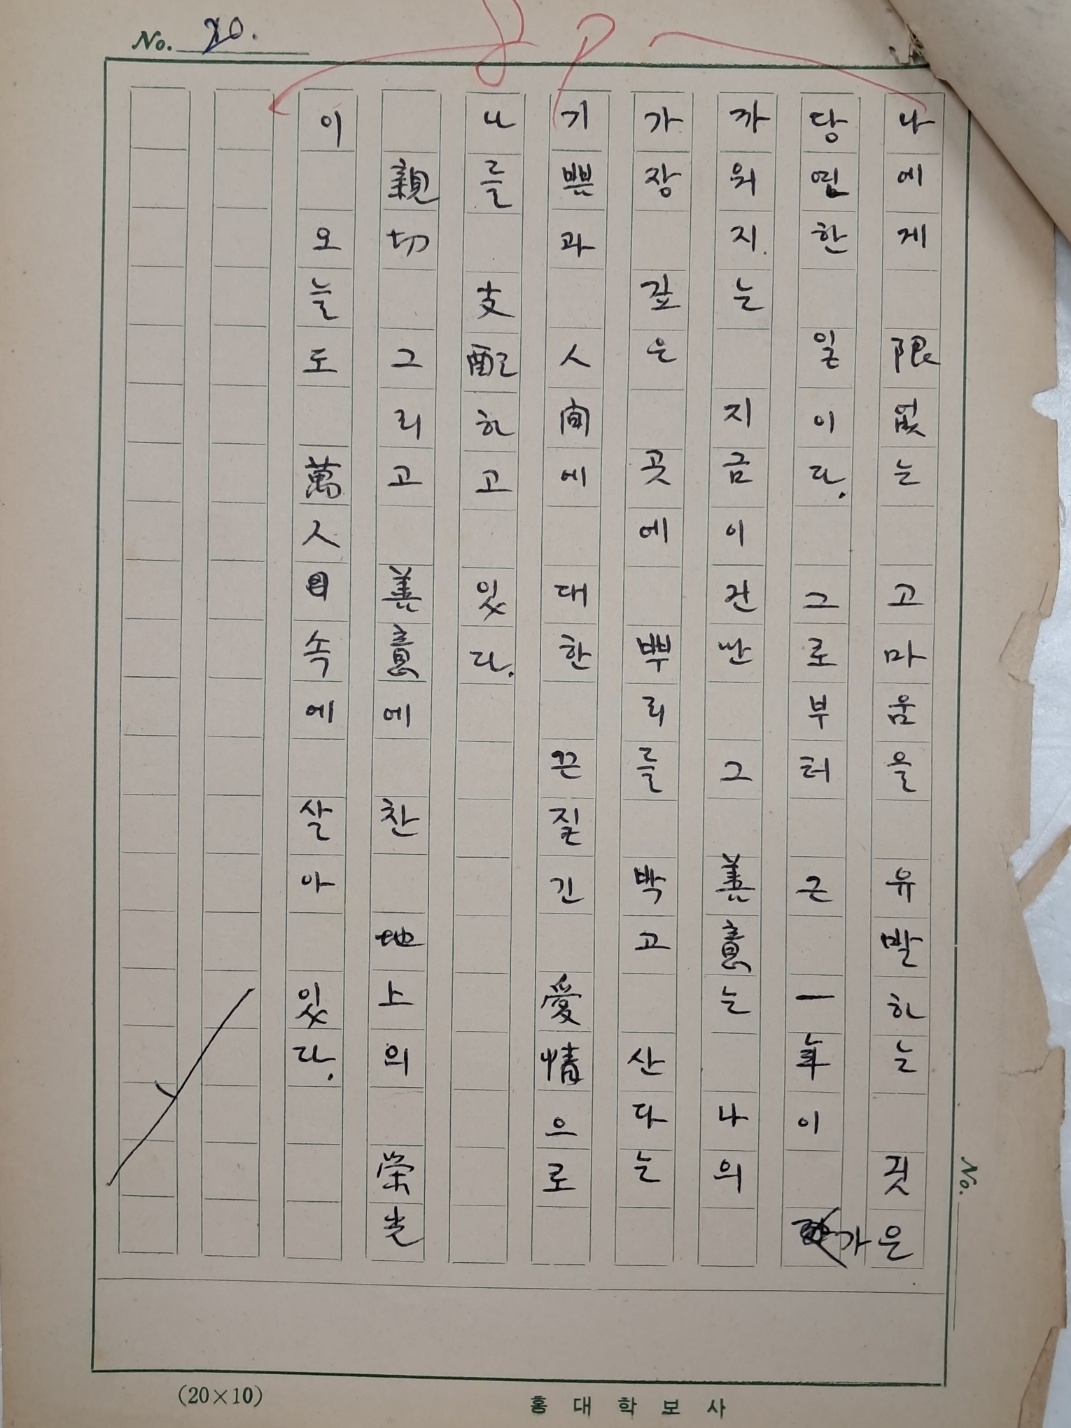 No. 20.
나에게 限없는 고마움을 유발하는 짓은
당연한 일이다. 그로부터 근 一年이 가
까워지는 지금이건만 그 善意는 나의
가장 깊은 곳에 뿌리를 박고 산다는
기쁨과 人間에 대한 끈질긴 愛情으로
나를 支配하고 있다.
親切 그리고 善意에 찬 地上의 栄光
이 오늘도 萬人目속에 살아 있다.
No.
(20×10)
홍대학보사